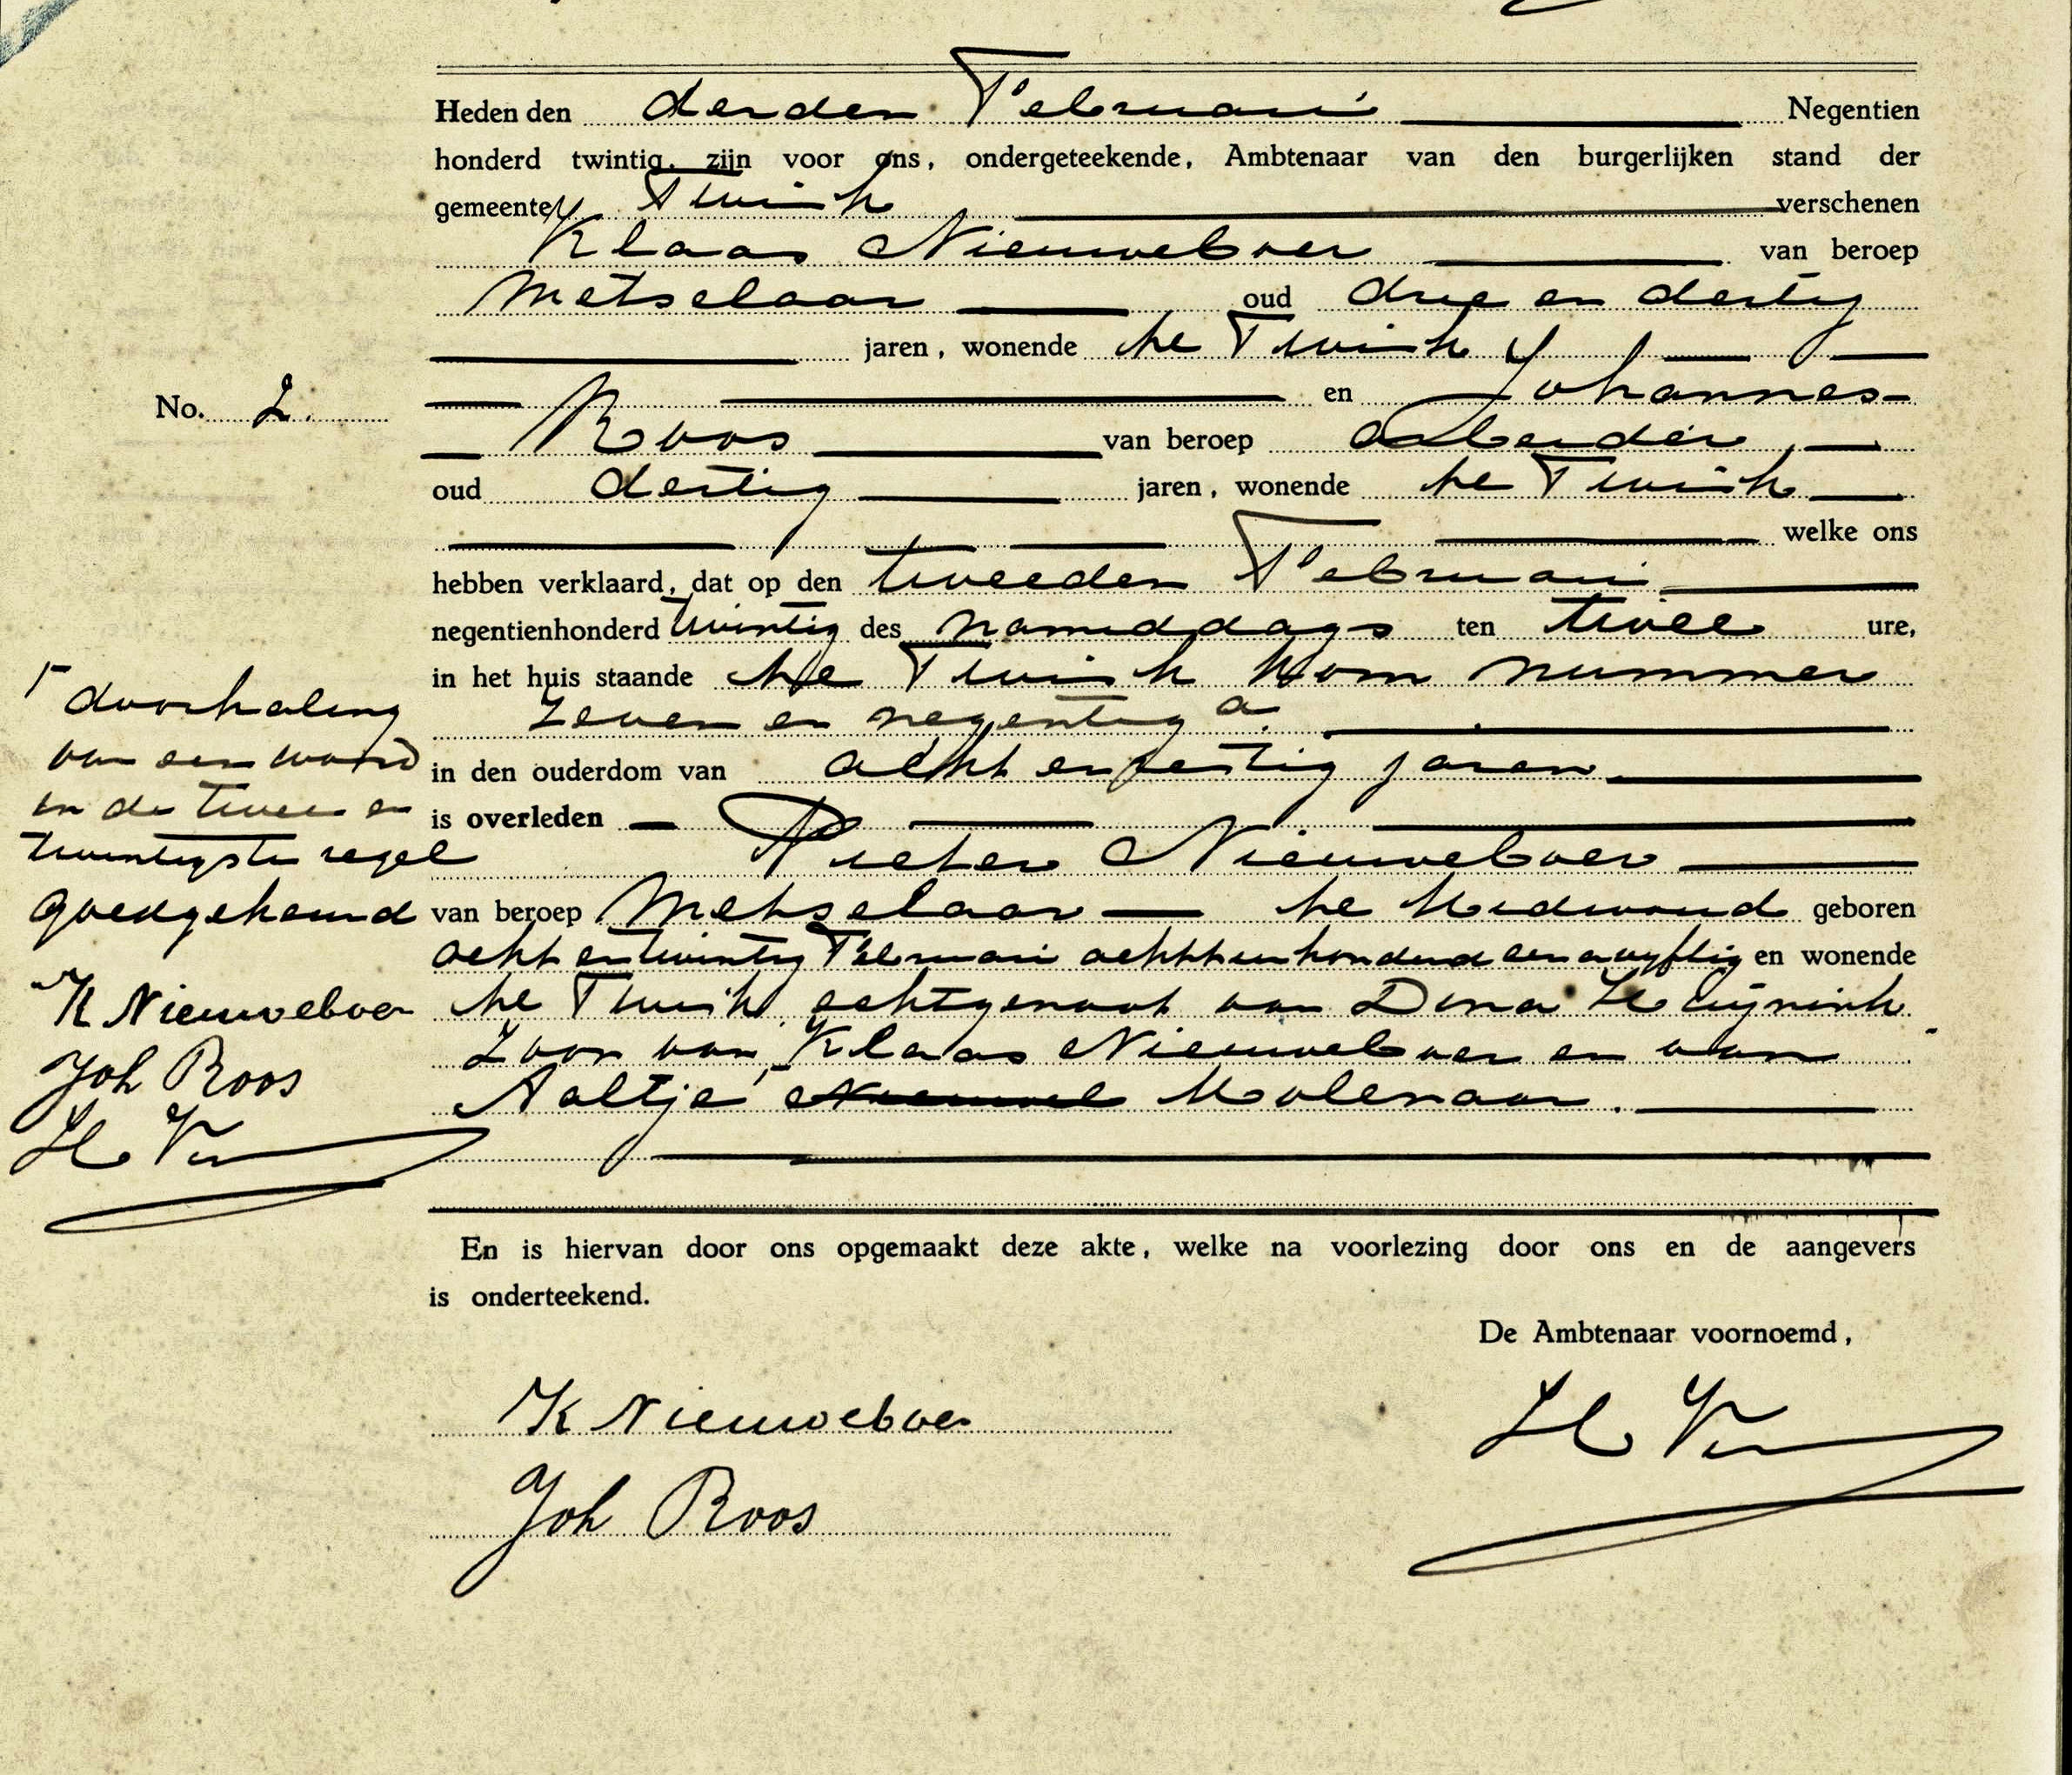 Heden den derden Februari Negentien
honderd twintig, zijn voor ons, ondergeteekende, Ambtenaar van den burgerlijken stand der
gemeente Twisk verschenen
Klaas Nieuweboer van beroep
Metselaar oud drie en dertig
jaren, wonende te Twisk
en Johannes
No. 2.
Roos van beroep arbeider,
oud dertig jaren, wonende te Twisk
welke ons
hebben verklaard, dat op den tweeden Februari
negentienhonderd twintig des namiddags ten twee ure,
in het huis staande te Twisk Kom nummer
zeven en negentig a.
in den ouderdom van acht en zestig jaren
is overleden
Pieter Nieuweboer
van beroep Metselaar te Midwoud geboren
acht en twintig Februari achttienhonderd een en vyftig en wonende
te Twisk, echtgenoot van Dina
Zoon van Klaas Nieuweboer en van
Aaltje Nieuwel Molenaar.
doorhaling
van een woord
in de twee en
twintigste regel
goedgekeurd
K Nieuweboer
Joh Roos
En is hiervan door ons opgemaakt deze akte, welke na voorlezing door ons en de aangevers
is onderteekend.
De Ambtenaar voornoemd,
K Nieuweboer
Joh Roos